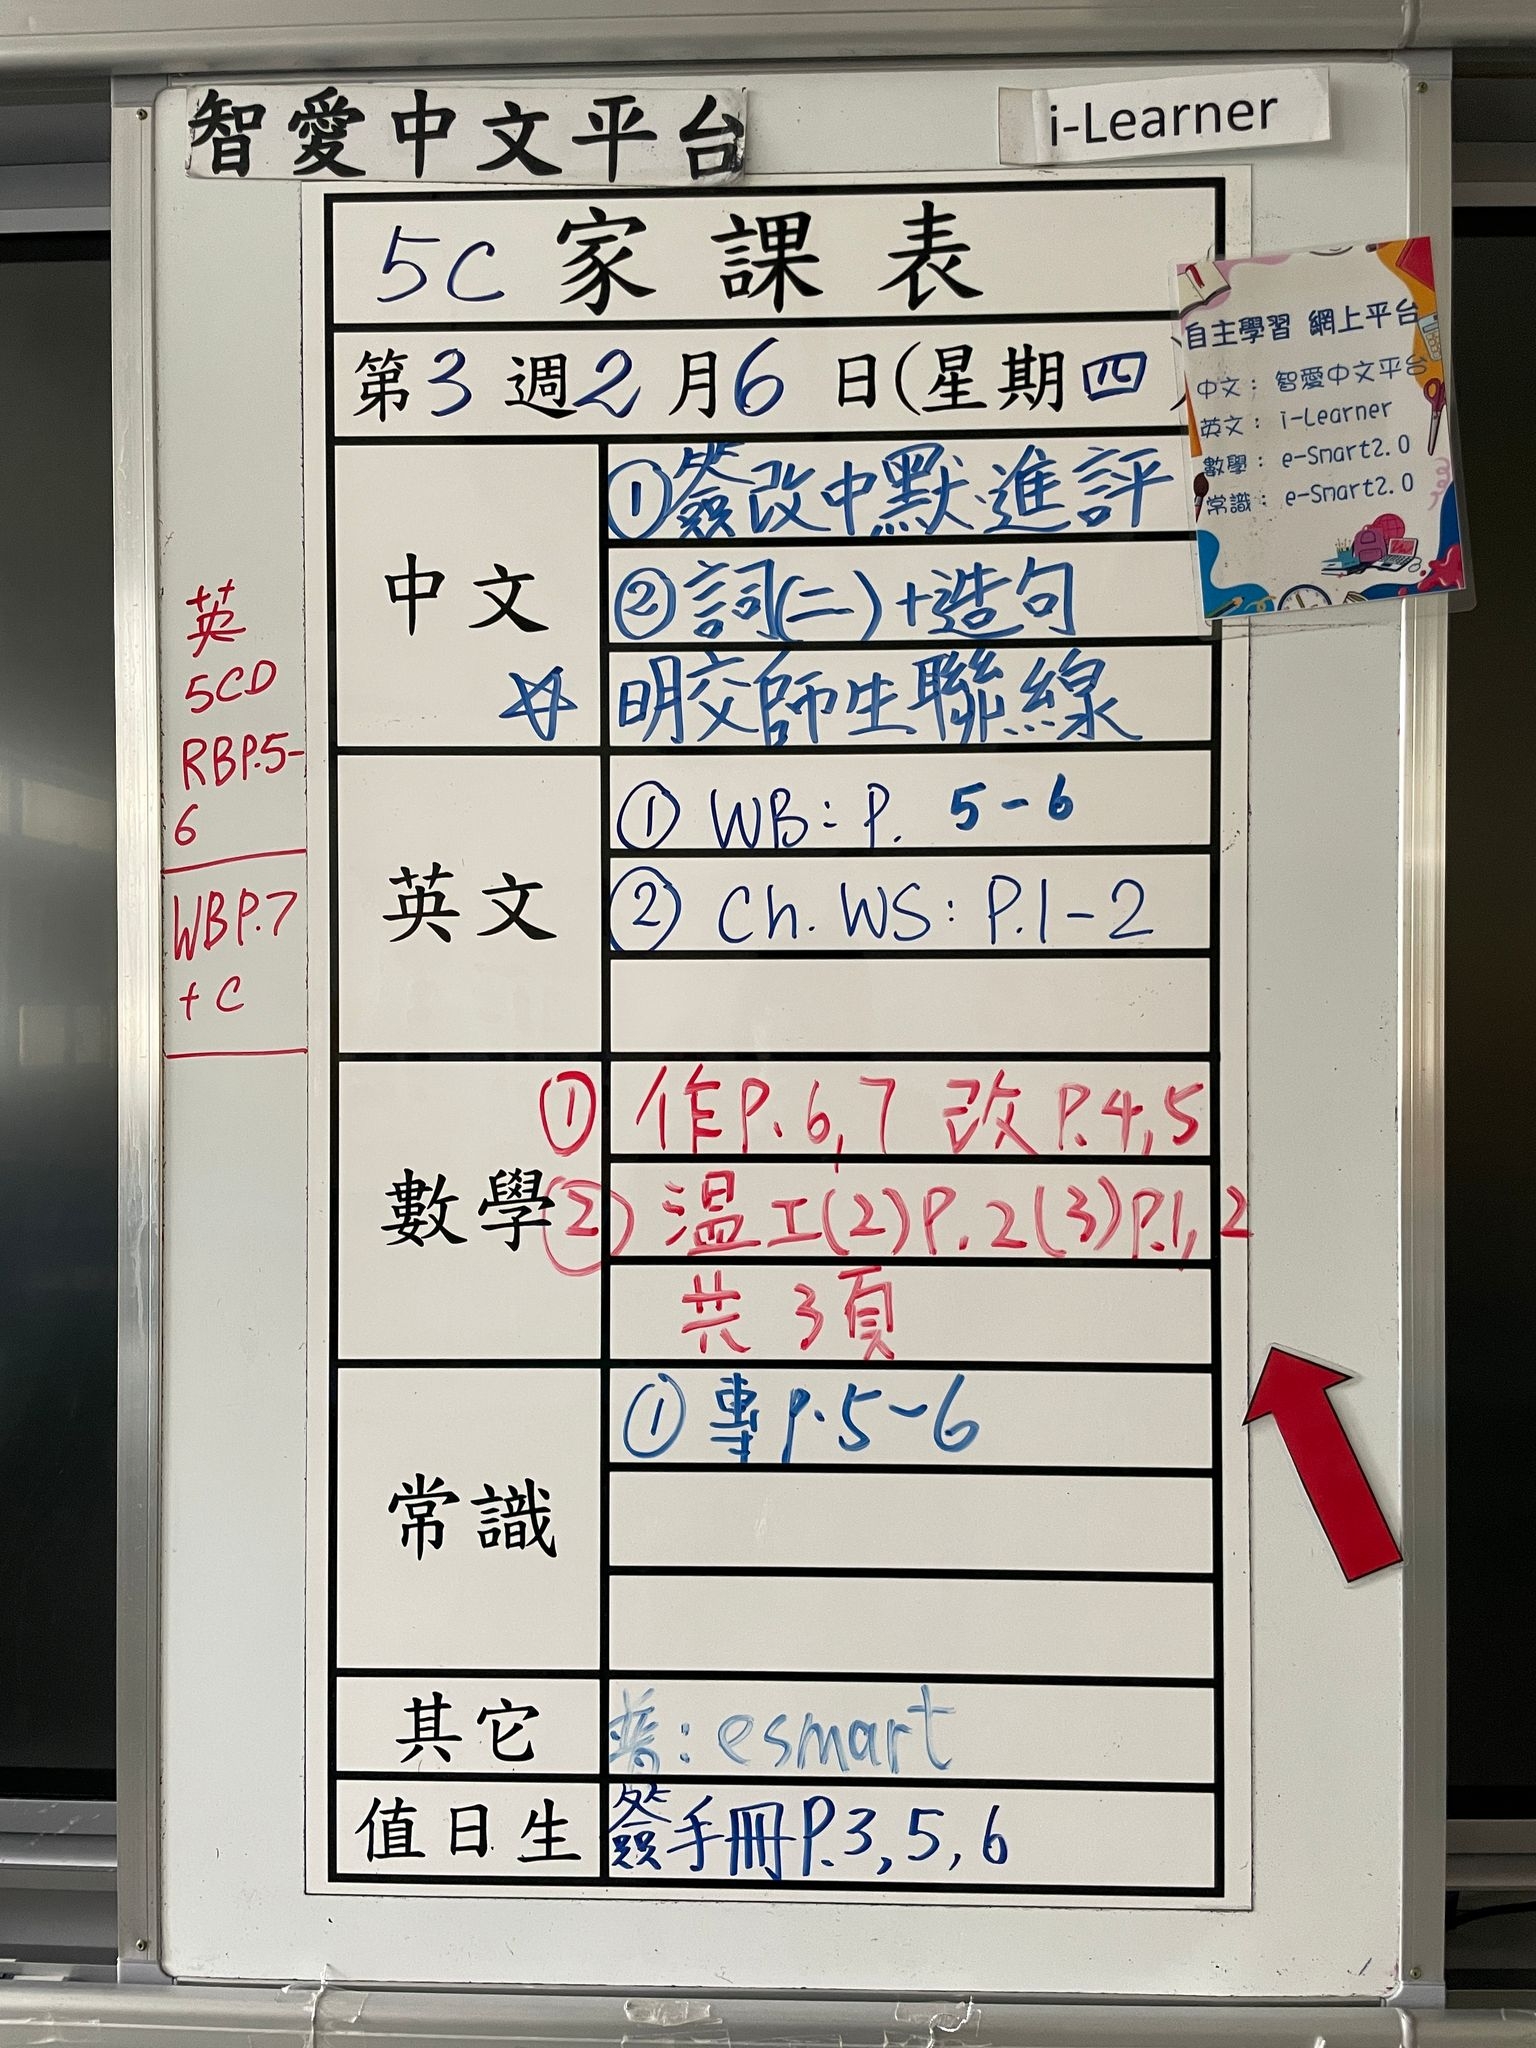 智愛中文平台
i-Learner
5C 家課表
第3週2月6日(星期四
自主學習 網上平台
中文： 智愛中文平台
英文： i-Learner
數學： e-Smart2.0
常識： e-Smart2.0
中文
①簽改中默、進評
②詞(二)+造句
☆ 明交師生聯線
英
5CD
RBP.5-
6
WBP.7
+C
英文
① WB: P. 5-6
② Ch. WS: P.1-2
數學
① 作P.6,7 改P.4,5
② 溫工(2)P.2(3)P.1,2
共3頁
常識
①專P.5~6
其它
普: esmart
值日生
簽手冊P.3,5,6